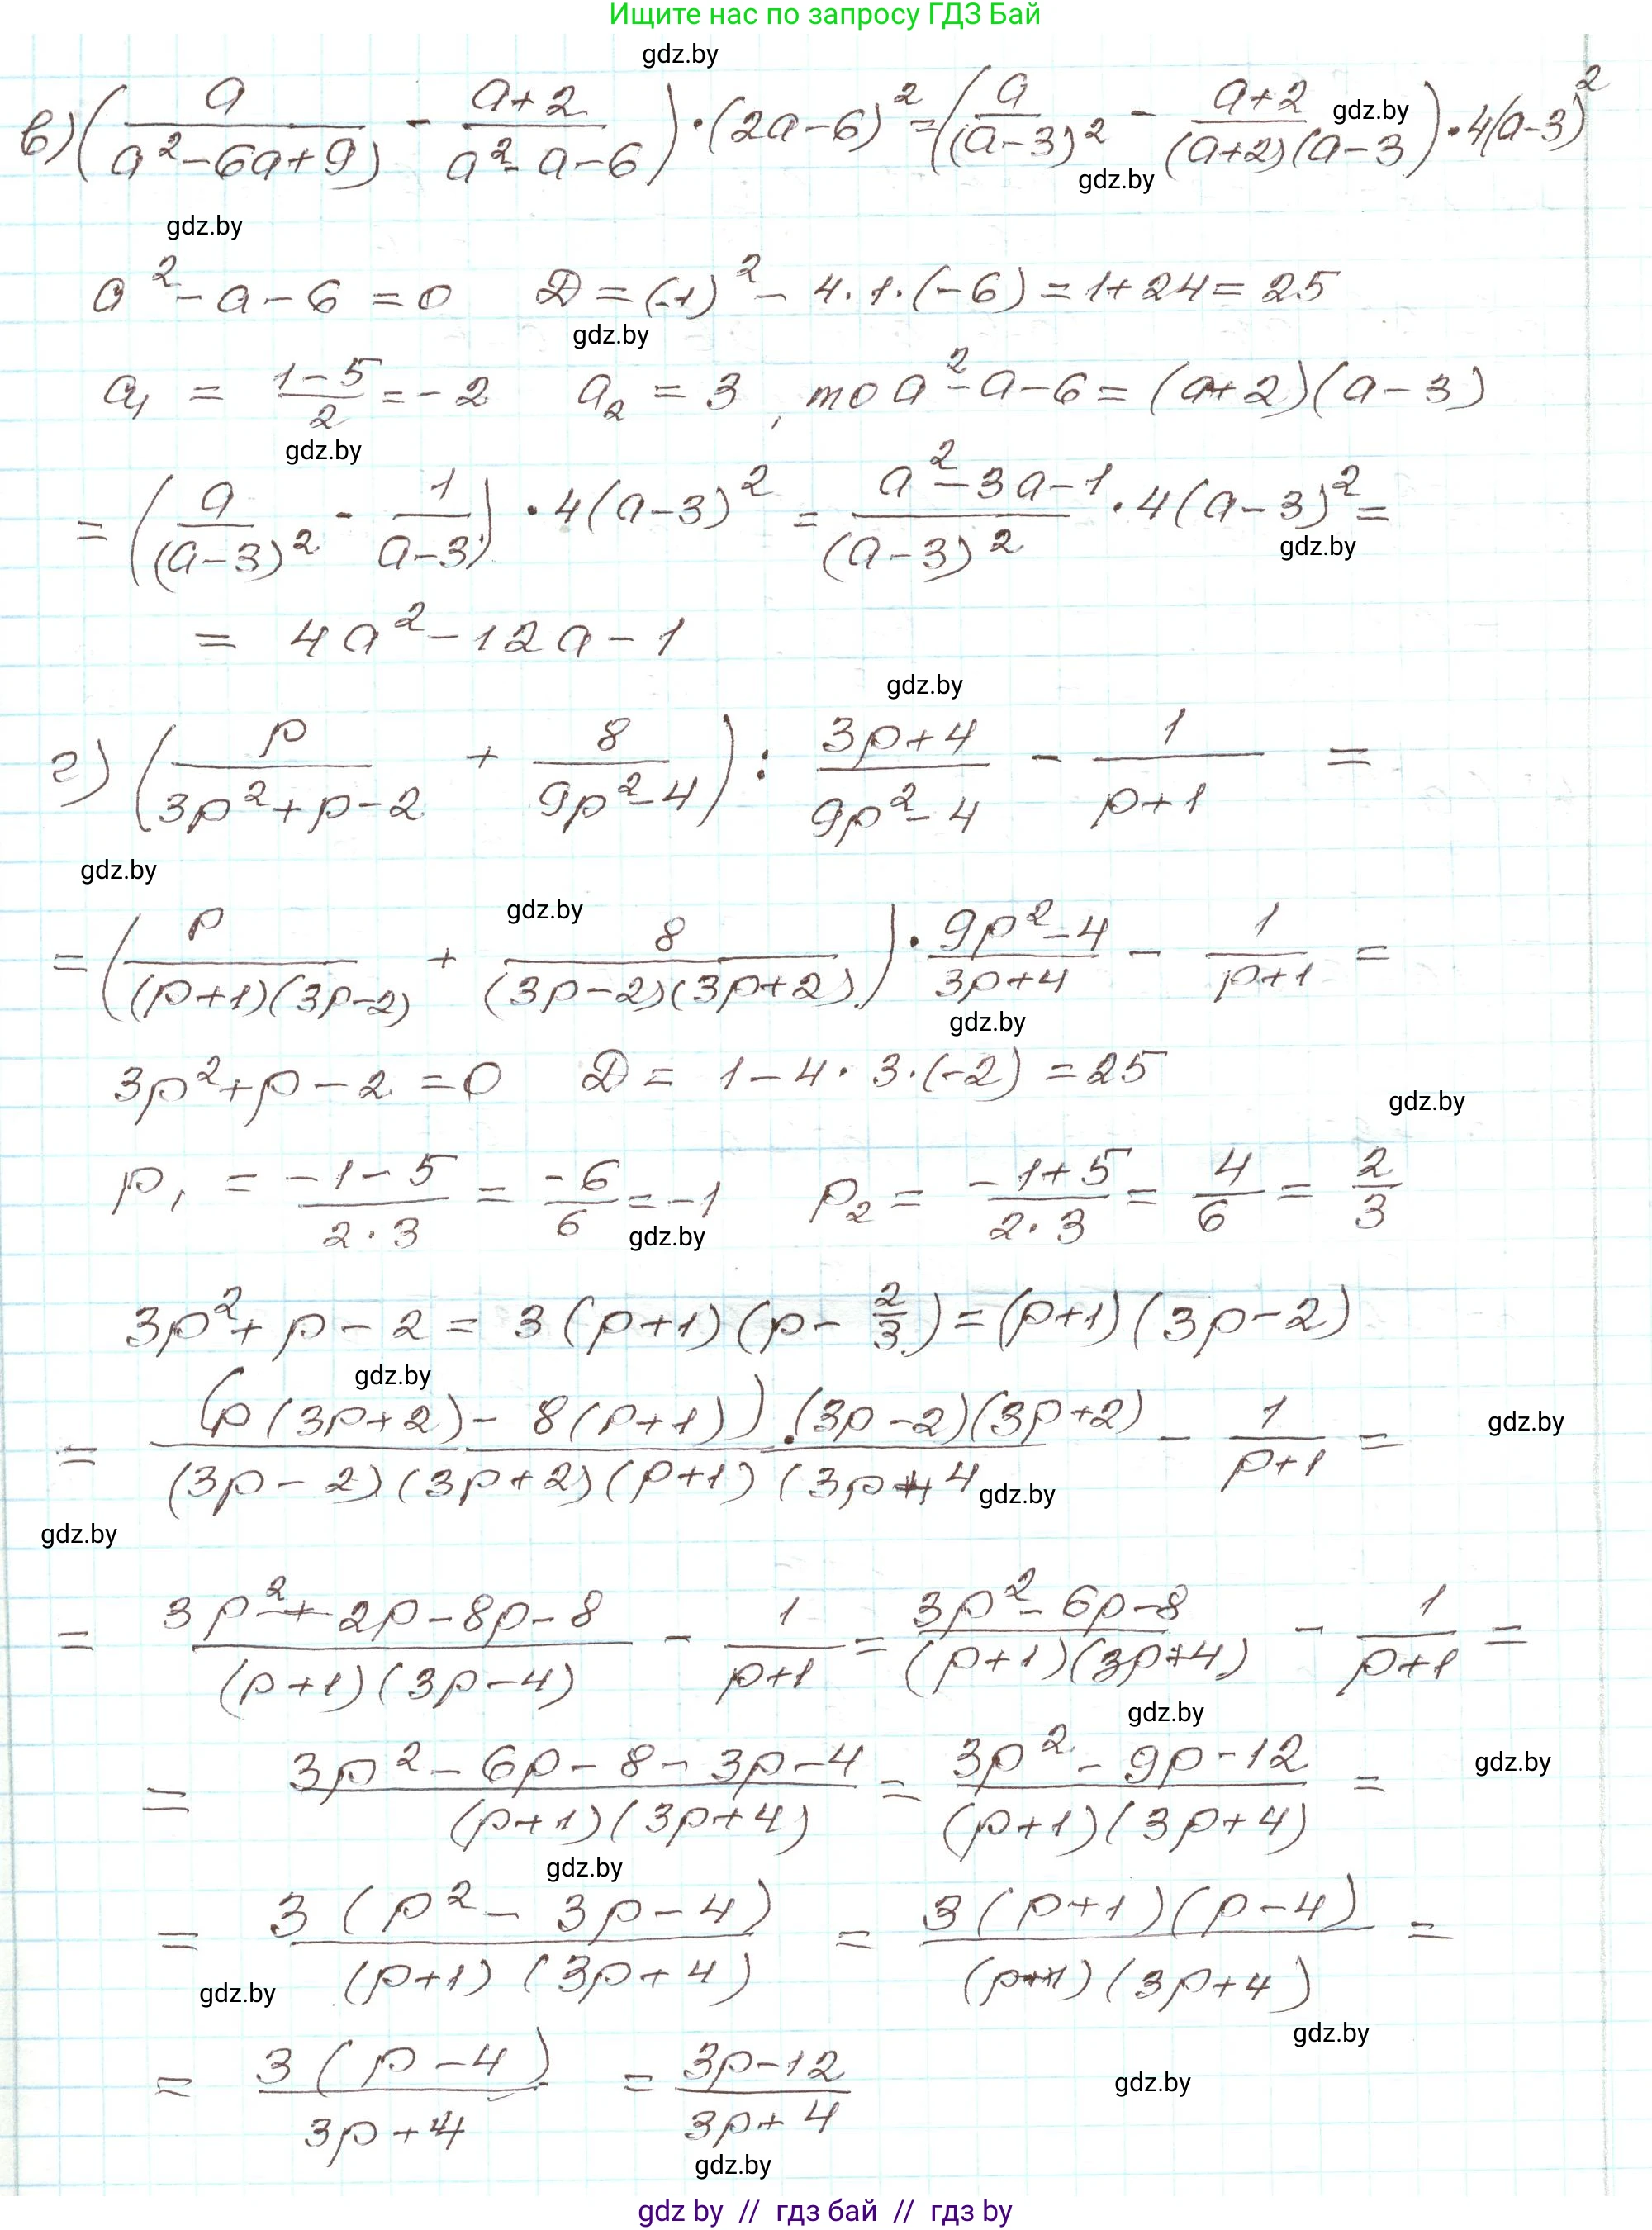 Ищите нас по запросу ГДЗ Бай
gdz.by
в) (a/(a²-6a+9) - (a+2)/(a²-a-6)) · (2a-6)² = (a/(a-3)² - (a+2)/((a+2)(a-3))) · 4(a-3)²
gdz.by
gdz.by
gdz.by
a²-a-6=0 D=(-1)²-4·1·(-6)=1+24=25
gdz.by
a₁ = (1-5)/2 = -2 a₂ = 3, то a²-a-6=(a+2)(a-3)
gdz.by
= (a/(a-3)² - 1/(a-3)) · 4(a-3)² = (a²-3a-1)/(a-3)² · 4(a-3)² =
gdz.by
= 4a²-12a-1
gdz.by
г) (p/(3p²+p-2) + 8/(9p²-4)) : (3p+4)/(9p²-4) - 1/(p+1) =
gdz.by
gdz.by
= (p/((p+1)(3p-2)) + 8/((3p-2)(3p+2))) · (9p²-4)/(3p+4) - 1/(p+1) =
gdz.by
3p²+p-2=0 D= 1-4·3·(-2)=25
gdz.by
p₁ = (-1-5)/(2·3) = -6/6 = -1 p₂ = (-1+5)/(2·3) = 4/6 = 2/3
gdz.by
3p²+p-2 = 3(p+1)(p-2/3) = (p+1)(3p-2)
gdz.by
= (p(3p+2)-8(p+1))·(3p-2)(3p+2)/((3p-2)(3p+2)(p+1)(3p+4 - 1/(p+1) =
gdz.by
gdz.by
gdz.by
= (3p²+2p-8p-8)/((p+1)(3p-4)) - 1/(p+1) = (3p²-6p-8)/((p+1)(3p+4)) - 1/(p+1) =
gdz.by
= (3p²-6p-8-3p-4)/((p+1)(3p+4)) = (3p²-9p-12)/((p+1)(3p+4)) =
gdz.by
gdz.by
= 3(p²-3p-4)/((p+1)(3p+4)) = 3(p+1)(p-4)/((p+1)(3p+4)) =
gdz.by
gdz.by
= 3(p-4)/(3p+4) = (3p-12)/(3p+4)
gdz.by
gdz.by
gdz by // гдз бай // гдз by